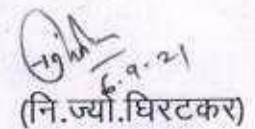 6.9.21
(नि.ज्यो.घिरटकर)